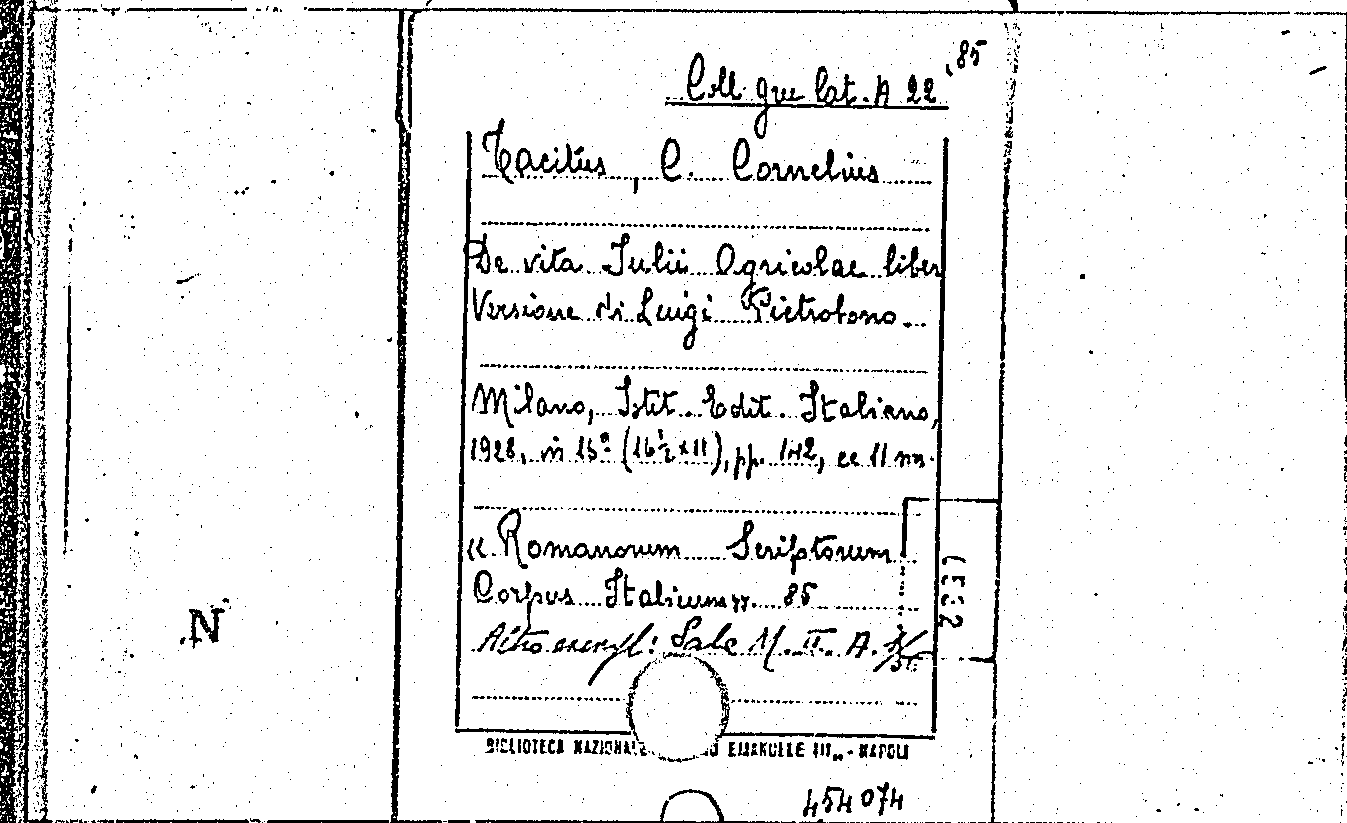 Coll. gre lat. A 22 '85
Tacitus, C. Cornelius
De vita Iulii Agricolae liber
Versione di Luigi Pietrobono.
Milano, Istit. Edit. Italiano,
1928, in 16º (16½×11), pp. 142, cc 11 nn.
« Romanorum Scriptorum
Corpus Italicum » 85
Altro exempl: Sala M. II. A.
BIBLIOTECA NAZIONALE EMANUELE III„ - NAPOLI
454074
N